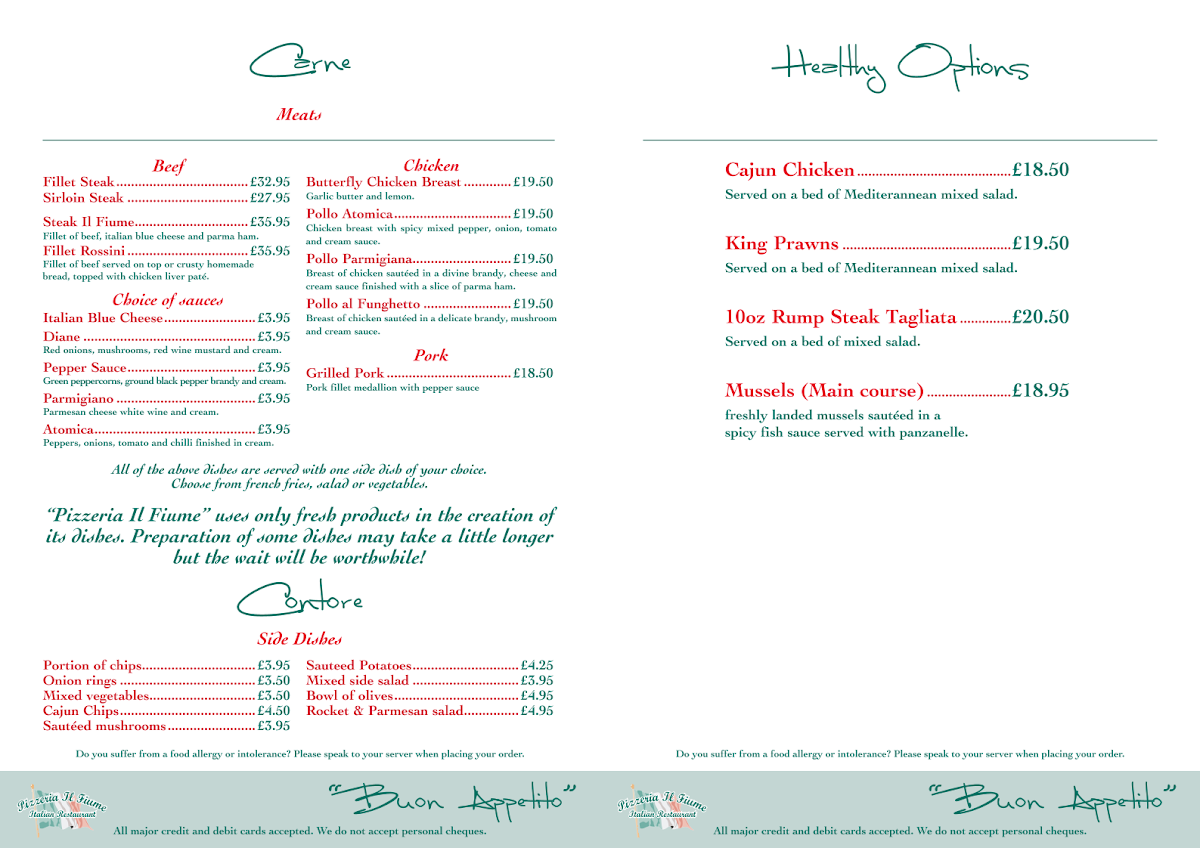 Carne
Meats
Beef
Fillet Steak.................................... £32.95
Sirloin Steak ................................. £27.95
Steak Il Fiume............................... £35.95
Fillet of beef, italian blue cheese and parma ham.
Fillet Rossini ................................. £35.95
Fillet of beef served on top or crusty homemade
bread, topped with chicken liver paté.
Choice of sauces
Italian Blue Cheese......................... £3.95
Diane ............................................... £3.95
Red onions, mushrooms, red wine mustard and cream.
Pepper Sauce................................... £3.95
Green peppercorns, ground black pepper brandy and cream.
Parmigiano ...................................... £3.95
Parmesan cheese white wine and cream.
Atomica............................................ £3.95
Peppers, onions, tomato and chilli finished in cream.
Chicken
Butterfly Chicken Breast ............. £19.50
Garlic butter and lemon.
Pollo Atomica................................ £19.50
Chicken breast with spicy mixed pepper, onion, tomato
and cream sauce.
Pollo Parmigiana........................... £19.50
Breast of chicken sautéed in a divine brandy, cheese and
cream sauce finished with a slice of parma ham.
Pollo al Funghetto ........................ £19.50
Breast of chicken sautéed in a delicate brandy, mushroom
and cream sauce.
Pork
Grilled Pork .................................. £18.50
Pork fillet medallion with pepper sauce
All of the above dishes are served with one side dish of your choice.
Choose from french fries, salad or vegetables.
“Pizzeria Il Fiume” uses only fresh products in the creation of
its dishes. Preparation of some dishes may take a little longer
but the wait will be worthwhile!
Contore
Side Dishes
Portion of chips............................... £3.95
Onion rings ..................................... £3.50
Mixed vegetables............................. £3.50
Cajun Chips..................................... £4.50
Sautéed mushrooms ........................ £3.95
Sauteed Potatoes............................. £4.25
Mixed side salad ............................. £3.95
Bowl of olives.................................. £4.95
Rocket & Parmesan salad............... £4.95
Do you suffer from a food allergy or intolerance? Please speak to your server when placing your order.
Pizzeria Il Fiume
Italian Restaurant
“Buon Appetito”
All major credit and debit cards accepted. We do not accept personal cheques.
Healthy Options
Cajun Chicken .......................................... £18.50
Served on a bed of Mediterannean mixed salad.
King Prawns .............................................. £19.50
Served on a bed of Mediterannean mixed salad.
10oz Rump Steak Tagliata .............. £20.50
Served on a bed of mixed salad.
Mussels (Main course) ....................... £18.95
freshly landed mussels sautéed in a
spicy fish sauce served with panzanelle.
Do you suffer from a food allergy or intolerance? Please speak to your server when placing your order.
Pizzeria Il Fiume
Italian Restaurant
“Buon Appetito”
All major credit and debit cards accepted. We do not accept personal cheques.